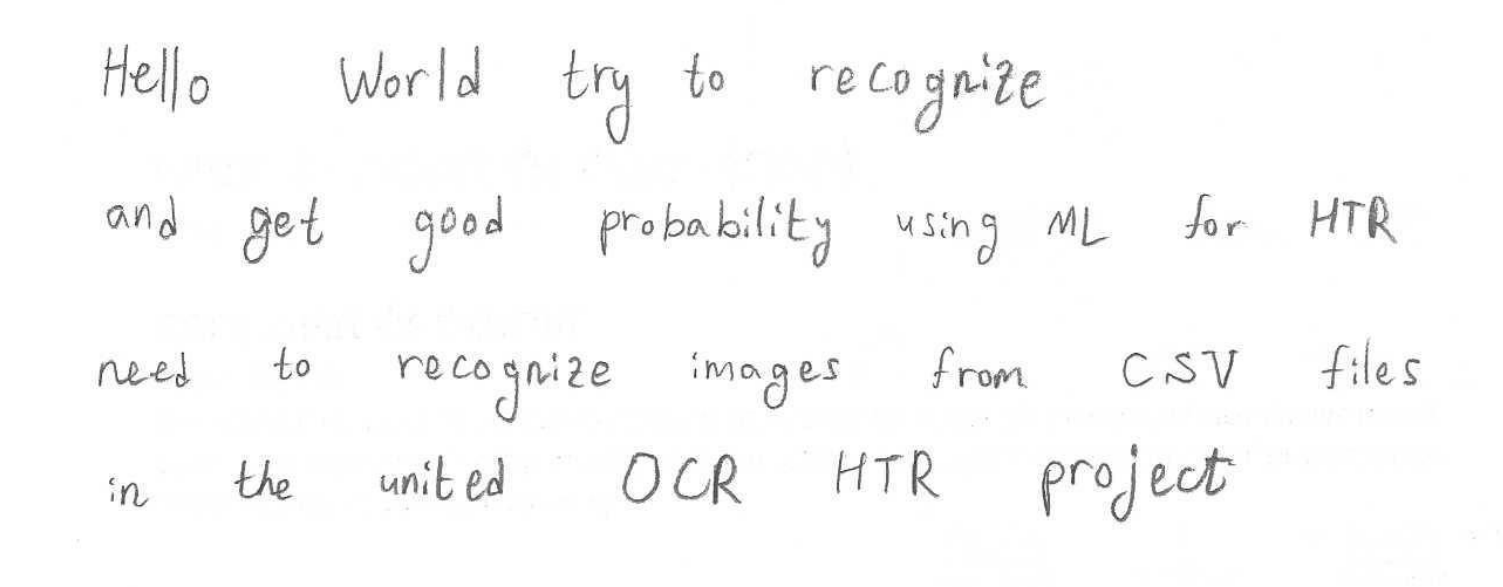 Hello World try to recognize
and get good probability using ML for HTR
need to recognize images from CSV files
in the united OCR HTR project